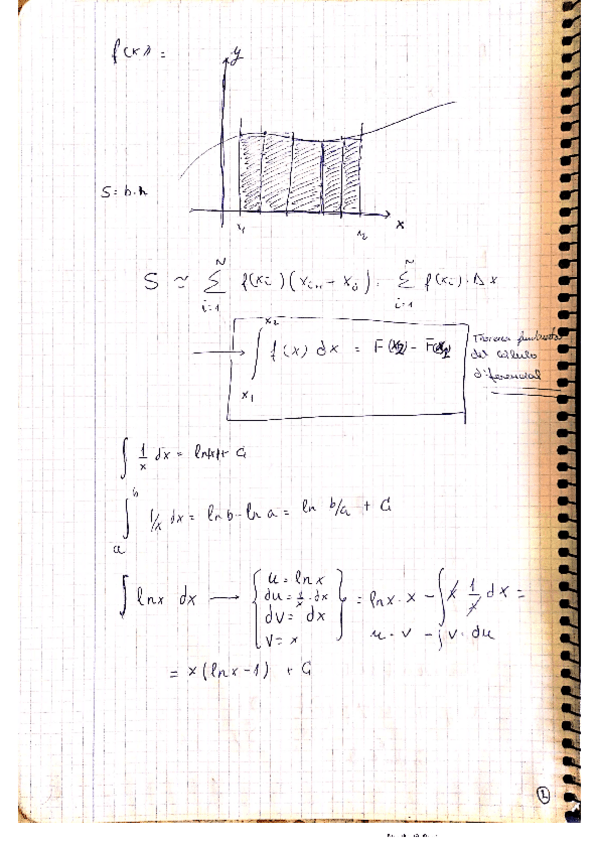 f(x) =
y
S = b·h
x
x₁
x₂
S ≃ Σ_{i=1}^{N} f(xᵢ)(xᵢ₊₁ - xᵢ) = Σ_{i=1}^{N} f(xᵢ)·Δx
→ ∫_{x₁}^{x₂} f(x) dx = F(x₂) - F(x₁)
Teorema fundamental
del cálculo
diferencial
∫ 1/x dx = ln|x| + C
∫_a^b 1/x dx = ln b - ln a = ln b/a + C
∫ ln x dx → { u = ln x
du = 1/x · dx
dv = dx
v = x } = ln x · x - ∫ x 1/x dx =
u·v - ∫ v·du
= x(ln x - 1) + C
1